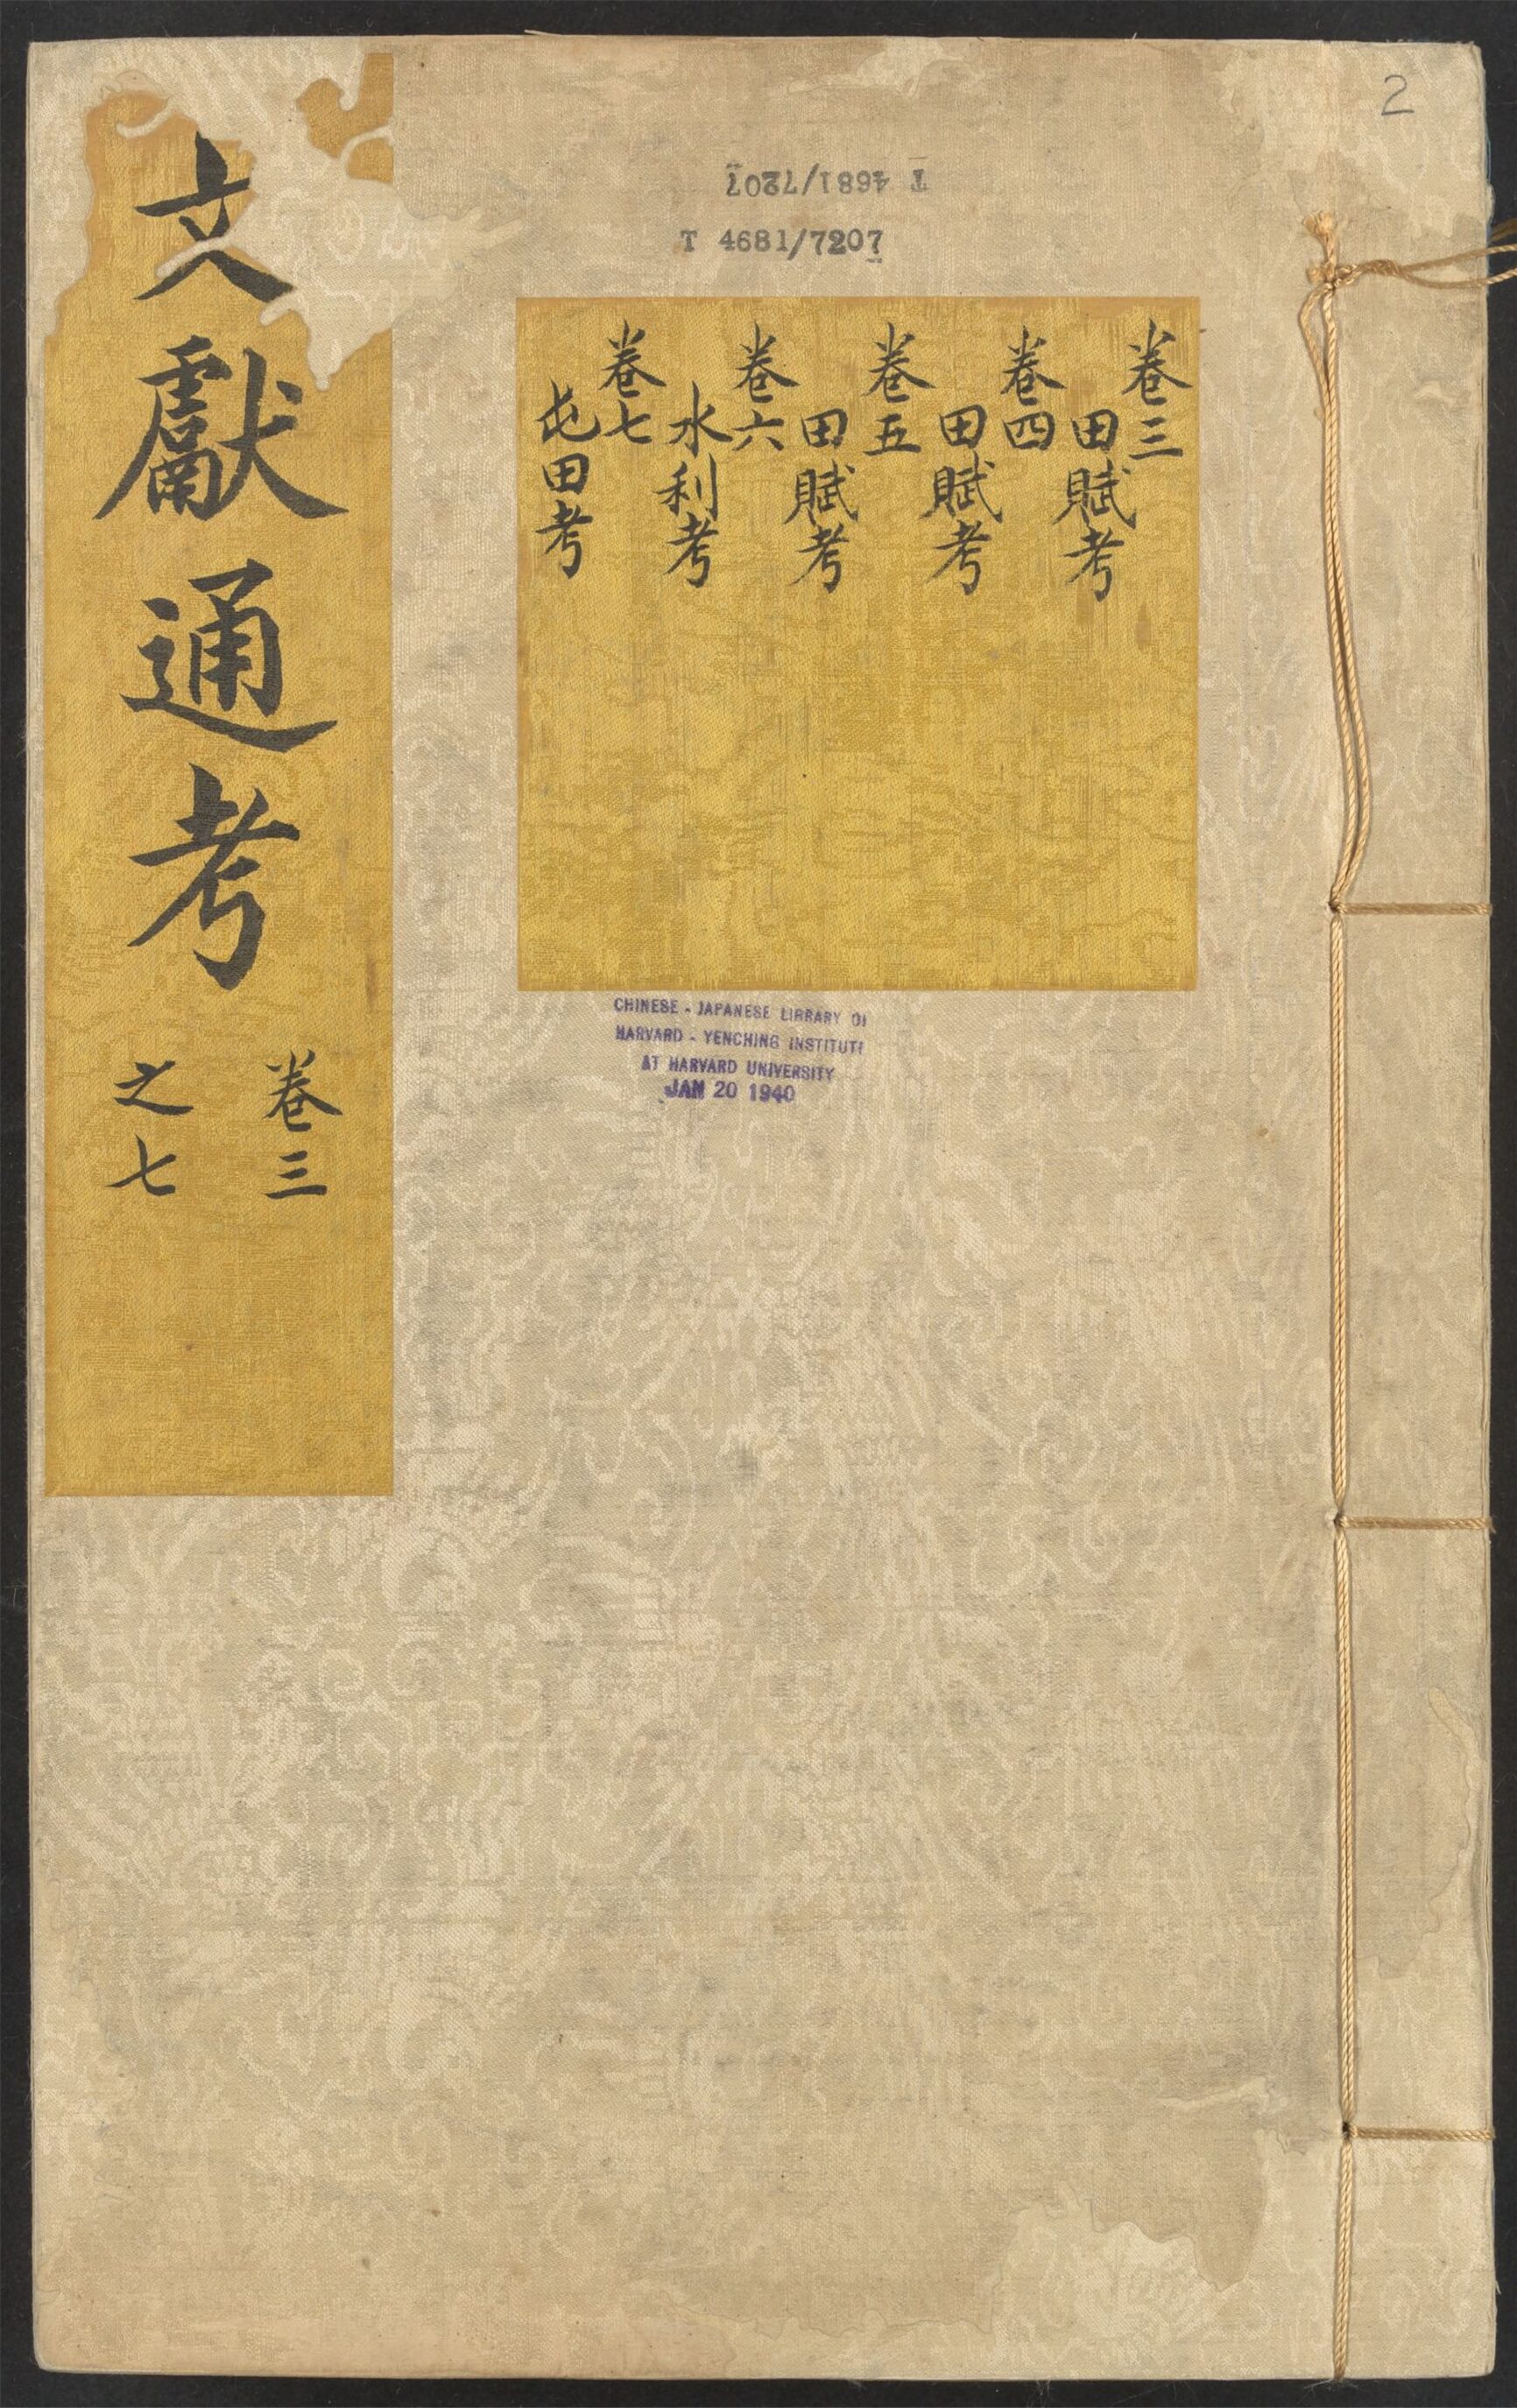 2
T 4681/7207
T 4681/7207
文獻通考
卷三
之七
卷三
田賦考
卷四
田賦考
卷五
田賦考
卷六
水利考
卷七
屯田考
CHINESE - JAPANESE LIBRARY OF
HARVARD - YENCHING INSTITUTE
AT HARVARD UNIVERSITY
JAN 20 1940